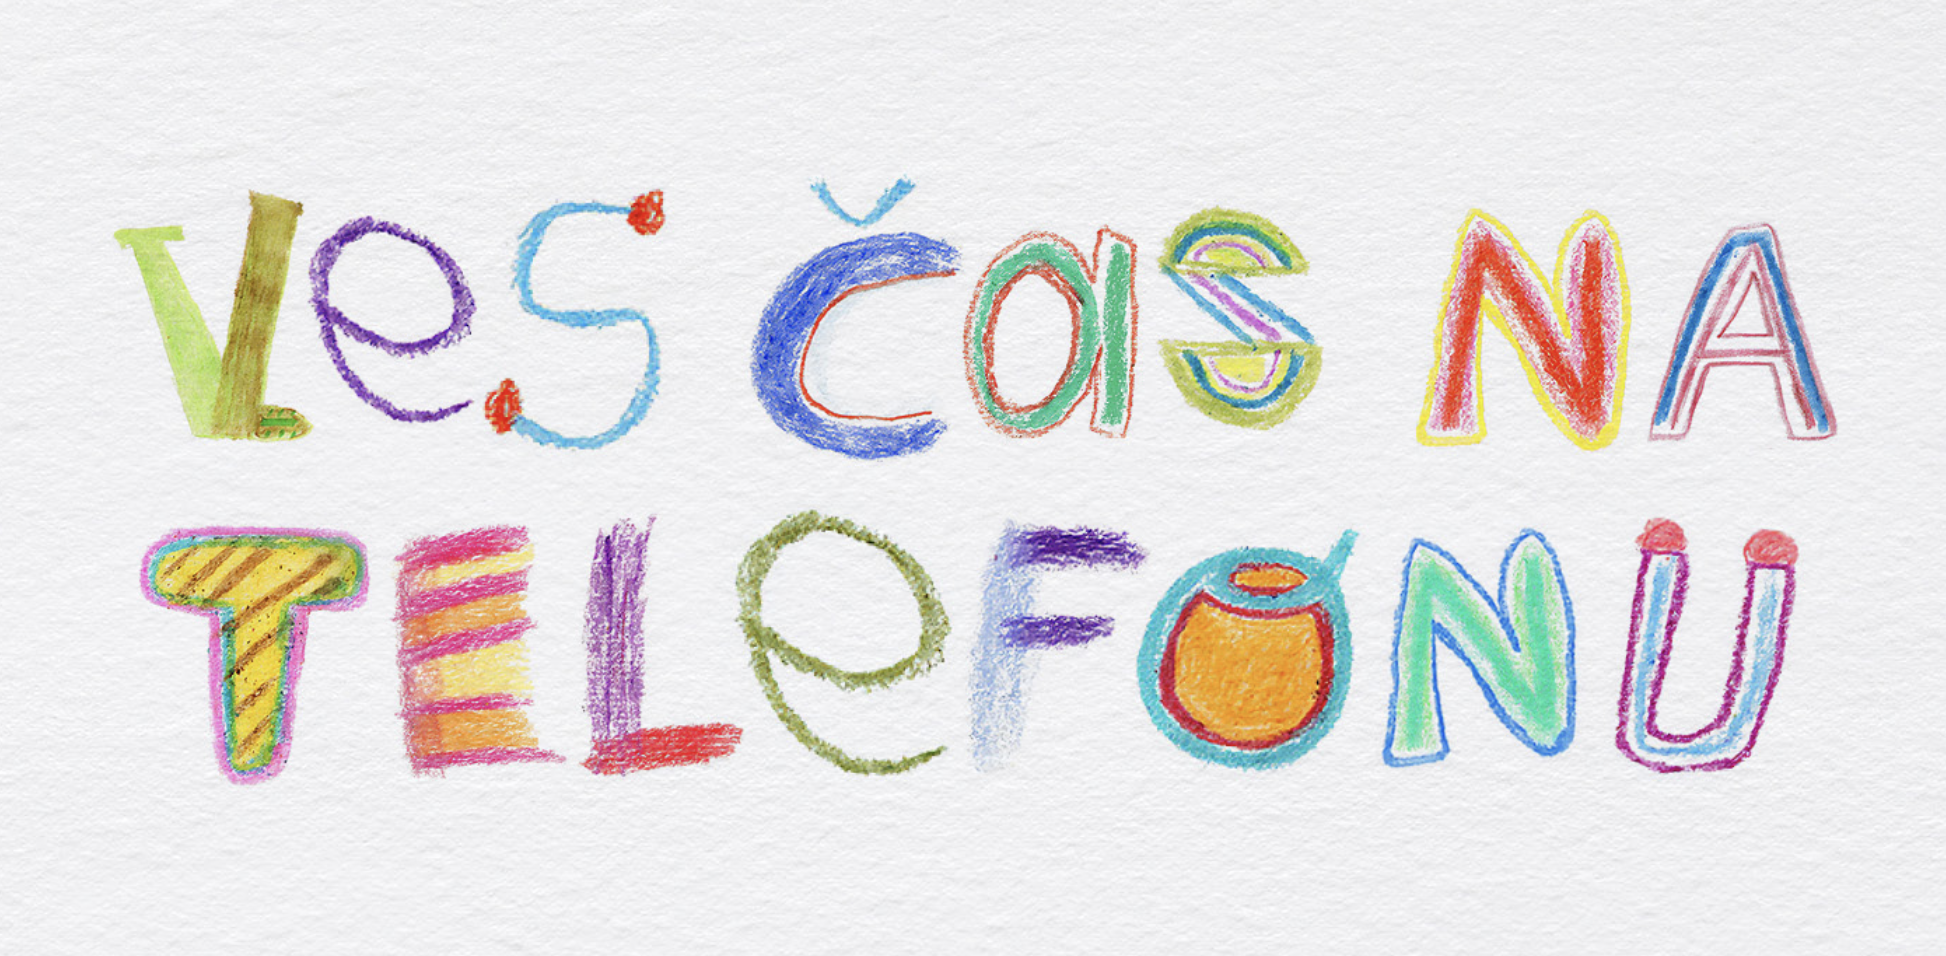 Ves čas NA
TELeFONU